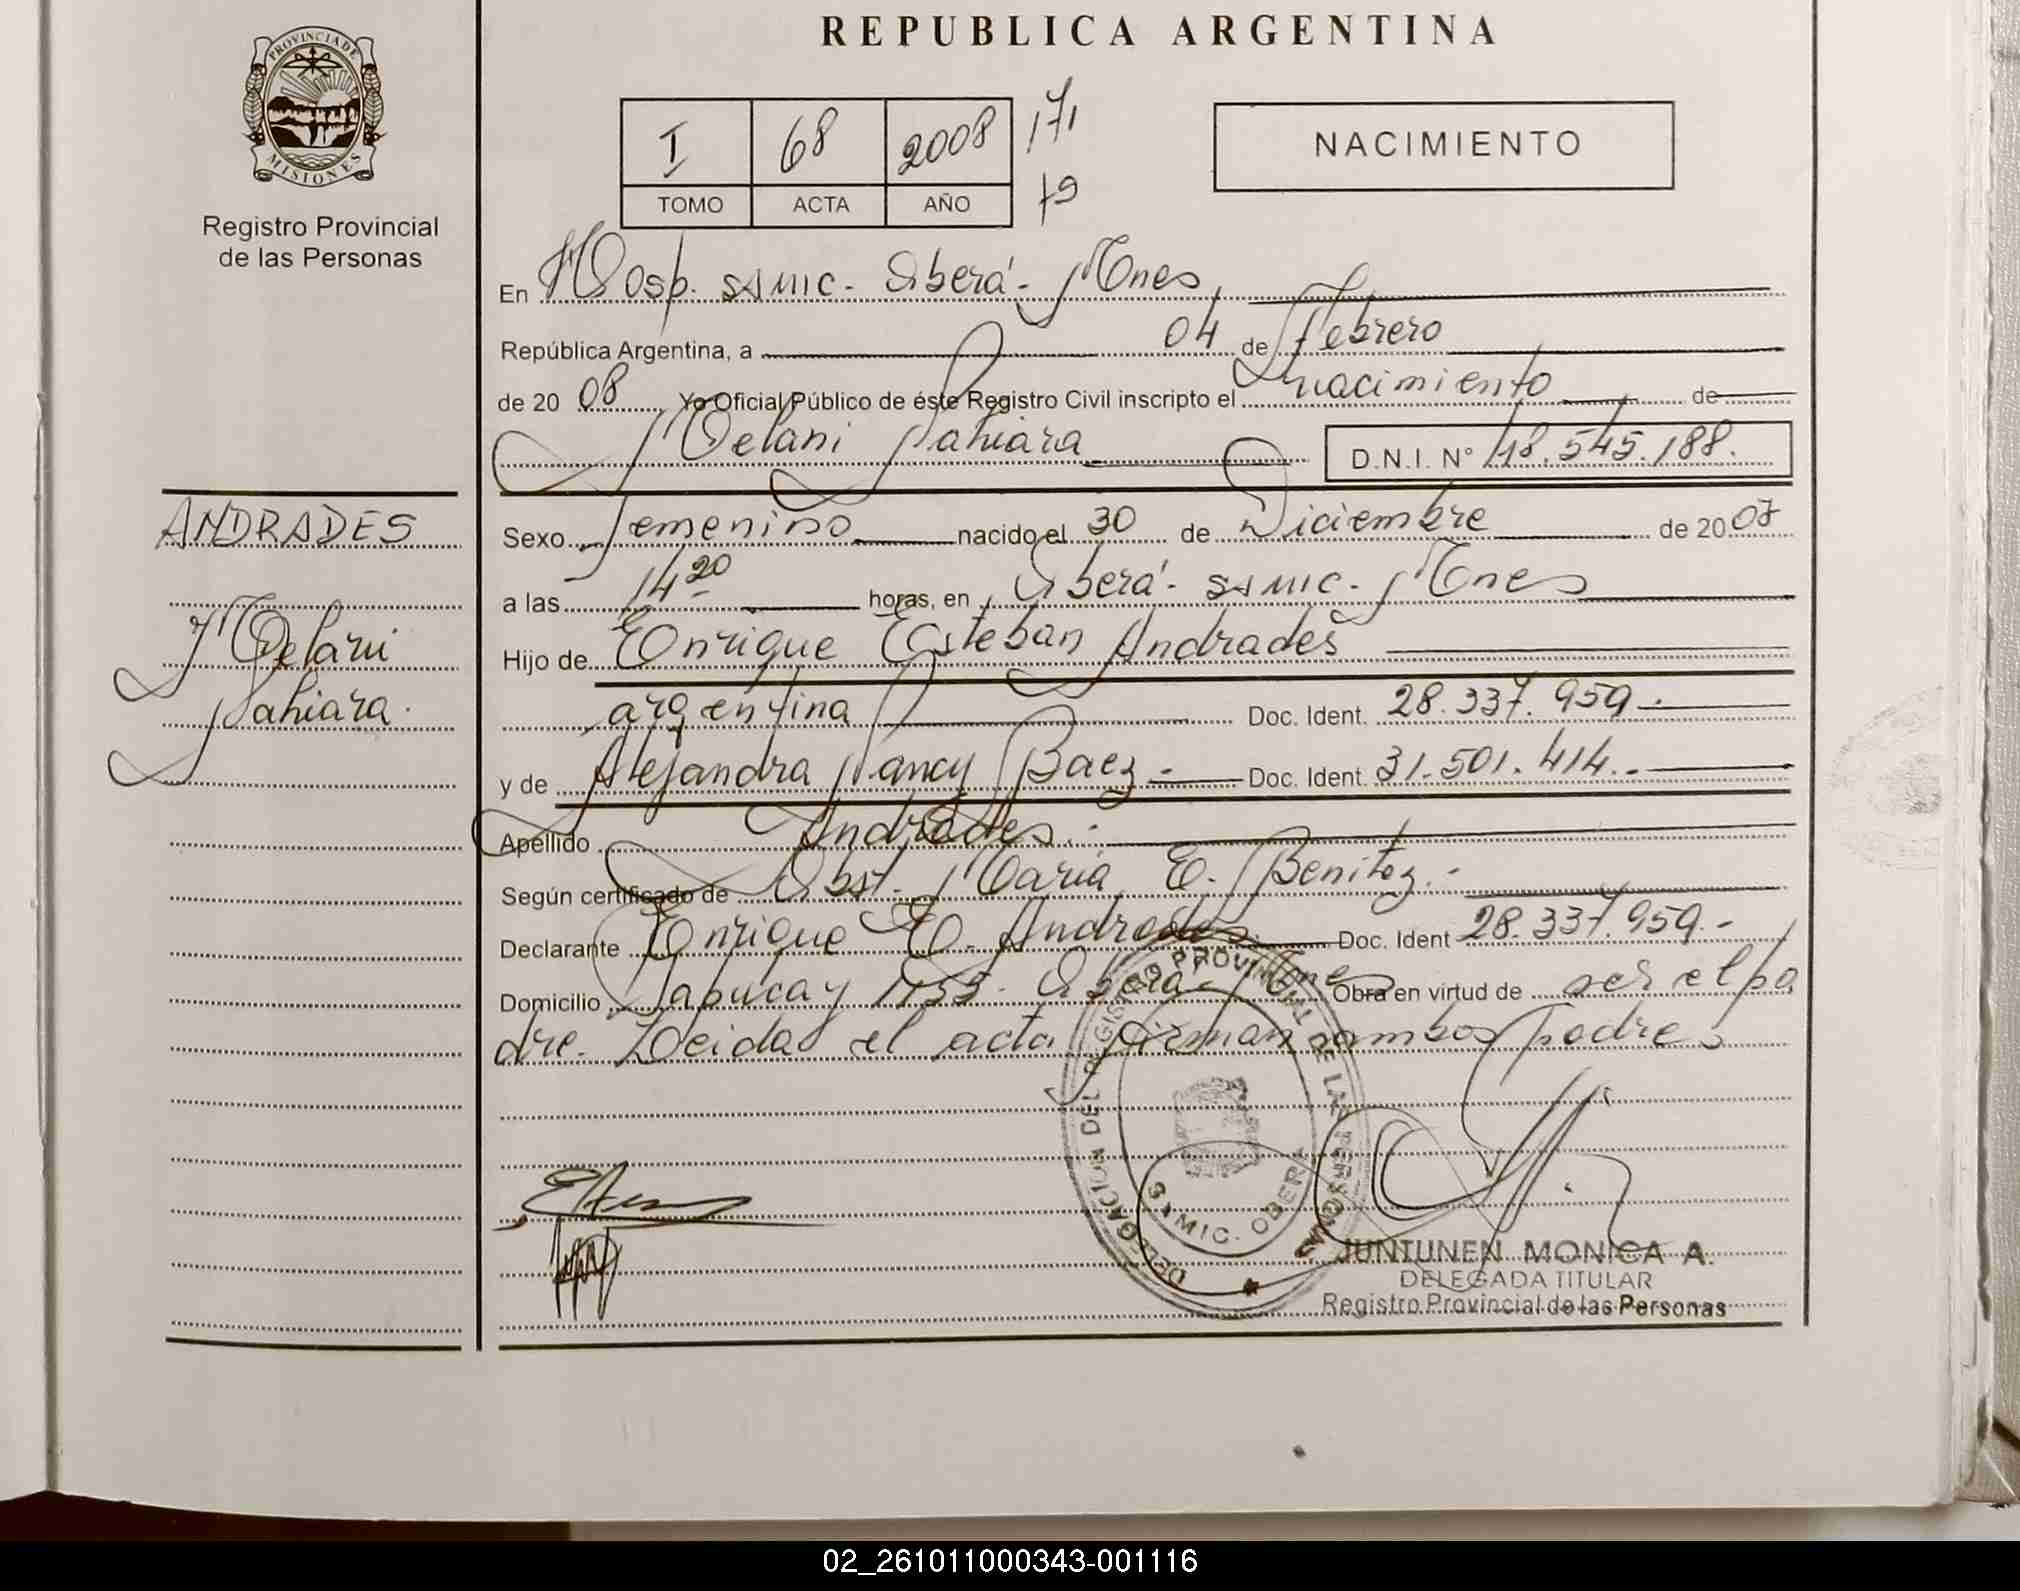 REPUBLICA ARGENTINA
PROVINCIA DE
MISIONES
Registro Provincial
de las Personas
I 68 2008 171
TOMO ACTA AÑO 79
NACIMIENTO
En Hosp. SAMIC - Oberá - Mnes
República Argentina, a 04 de Febrero
de 20 08 Yo Oficial Público de éste Registro Civil inscripto el nacimiento de
Melani Nahiara D.N.I. N° 48.545.188.
ANDRADES
Melani
Nahiara.
Sexo Femenino nacido el 30 de Diciembre de 2007
a las 14 20 horas, en Oberá - SAMIC - Mnes
Hijo de Enrique Esteban Andrades
argentina Doc. Ident. 28.337.959.-
y de Alejandra Nancy Baez - Doc. Ident. 31.501.414.-
Apellido Andrades.-
Según certificado de Obst. Maria E. Benitez.-
Declarante Enrique E. Andrades Doc. Ident 28.337.959.-
Domicilio Oberá - Mnes Obra en virtud de ser el pa
dre. Leida el acta firman ambos padres
DELEGACION DEL REGISTRO PROVINCIAL DE LAS PERSONAS
SAMIC. OBERA
JUNTUNEN MONICA A.
DELEGADA TITULAR
Registro Provincial de las Personas
02_261011000343-001116